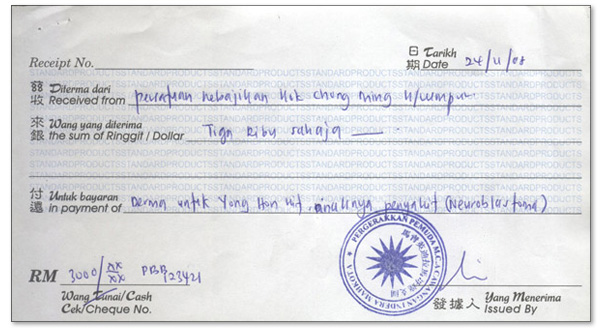 日 Tarikh
Receipt No. 期 Date 24/11/08
STANDARDPRODUCTSSTANDARDPRODUCTSSTANDARDPRODUCTS
Diterima dari
收 Received from Kebajikan Hok Chong Ming
來 Wang yang diterima
銀 the sum of Ringgit / Dollar Tiga Ribu sahaja
付 Untuk bayaran
還 in payment of Derma untuk Yong Hon Kit penyakit (Neuroblastoma)
PERGERAKKAN PEMUDA M.C.A. CAWANGAN INDERA MAHKOTA
RM 3000/ xx xx PBB 123421
Wang Tunai/Cash
Cek/Cheque No.
發據人 Yang Menerima
Issued By